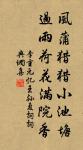 風蒲獵獵小池塘
過雨荷花滿院香
李重元憶王孫夏詞詞
典網集